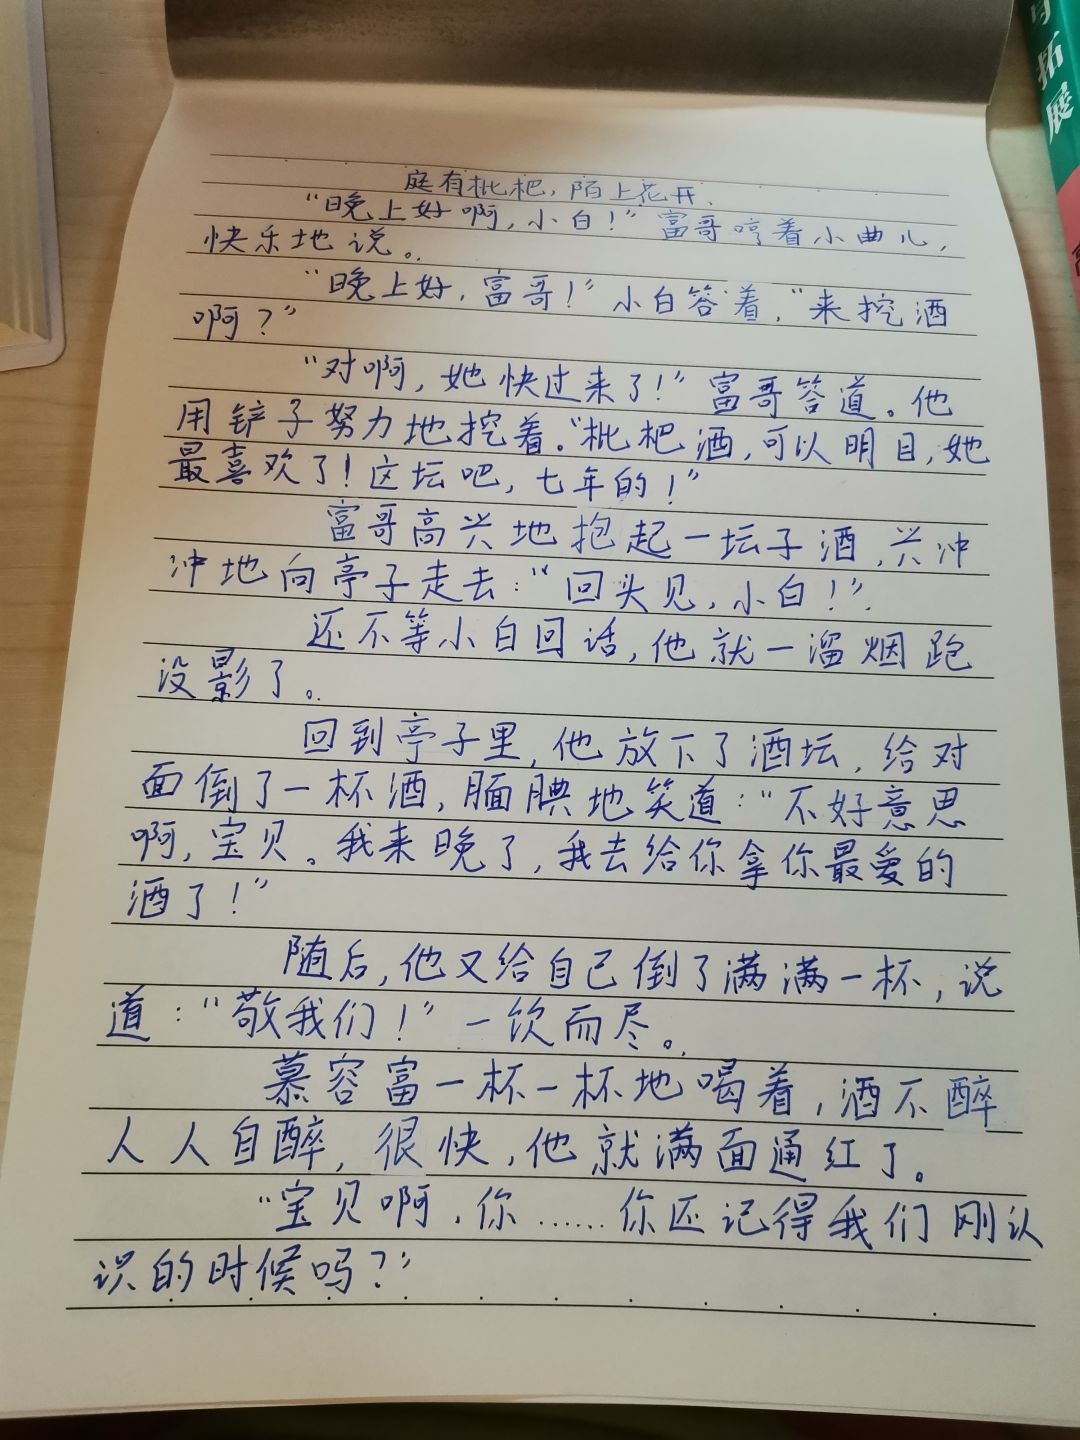 与拓展
庭有枇杷，陌上花开.
“晚上好啊，小白！”富哥哼着小曲儿，
快乐地说。
“晚上好，富哥！”小白答着，“来挖酒
啊？”
“对啊，她快过来了！”富哥答道。他
用铲子努力地挖着。“枇杷酒，可以明目，她
最喜欢了！这坛吧，七年的！”
富哥高兴地抱起一坛子酒，兴冲
冲地向亭子走去：“回头见，小白！”.
还不等小白回话，他就一溜烟跑
没影了。
回到亭子里，他放下了酒坛，给对
面倒了一杯酒，腼腆地笑道：“不好意思
啊，宝贝。我来晚了，我去给你拿你最爱的
酒了！”
随后，他又给自己倒了满满一杯，说
道：“敬我们！”一饮而尽。
慕容富一杯一杯地喝着，酒不醉
人人自醉，很快，他就满面通红了。
“宝贝啊，你……你还记得我们刚认
识的时候吗？”